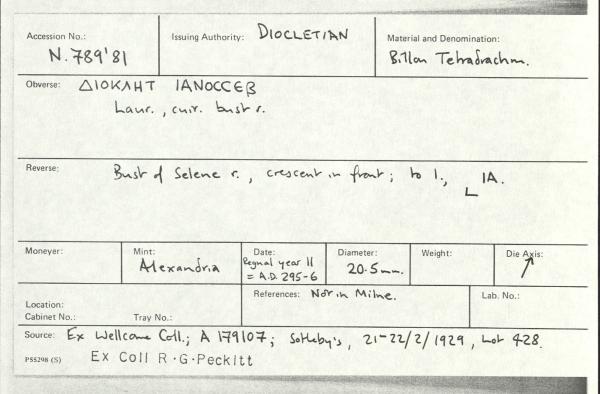 Accession No.: N.789'81
Issuing Authority: DIOCLETIAN
Material and Denomination: Billon Tetradrachm.
Obverse: ΔΙΟΚΛΗΤ ΙΑΝΟCCЄΒ
Laur., cuir. bust r.
Reverse: Bust of Selene r., crescent in front; to l., L IA.
Moneyer:
Mint: Alexandria
Date: Regnal year 11
= A.D. 295-6
Diameter: 20.5mm.
Weight:
Die Axis: ↑
Location:
Cabinet No.: Tray No.:
References: Not in Milne.
Lab. No.:
Source: Ex Wellcome Coll.; A 179107; Sotheby's, 21-22/2/1929, Lot 428.
PS5298 (S) Ex Coll R.G.Peckitt